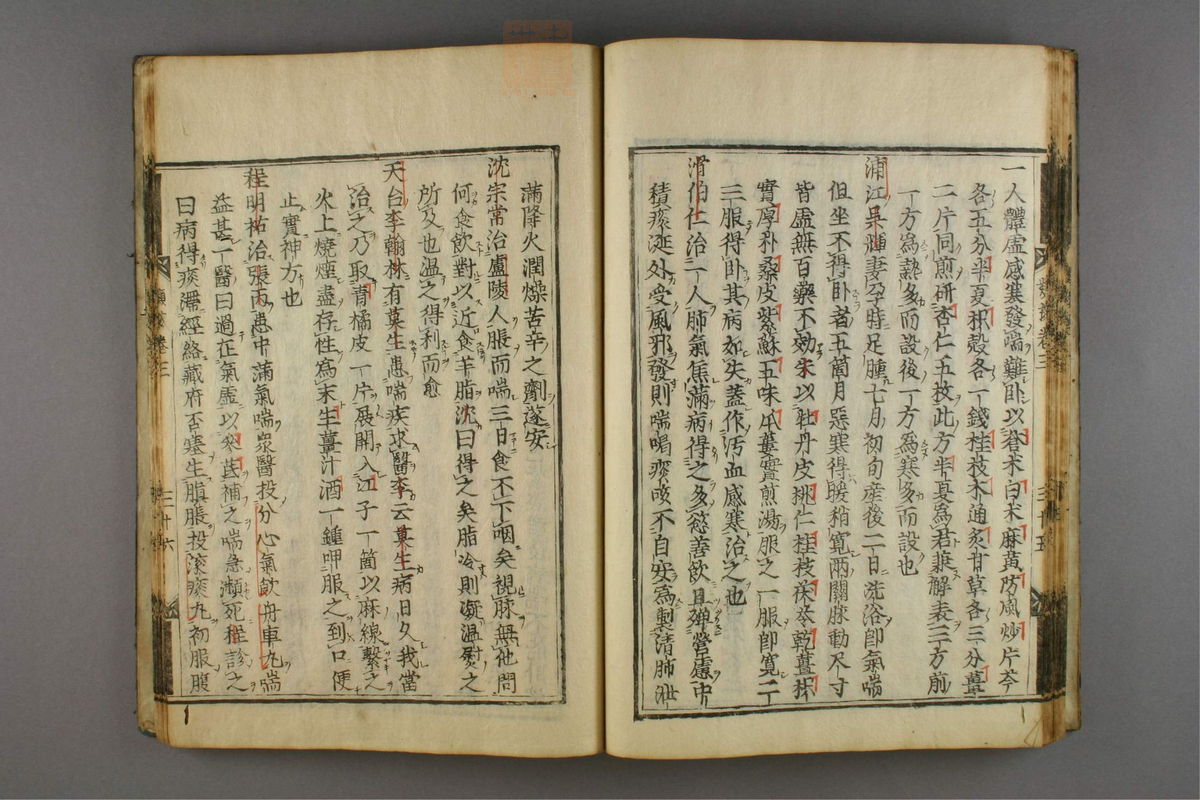 一人體虛感寒發喘難卧以蒼术白术麻黃防風炒片芩
各五分半夏枳殼各一錢桂枝木通炙甘草各三分薑
二片同煎研杏仁五枚此方半夏為君兼解表二方前
一方為熱多而設後一方為寒多而設也
浦江吳輝妻孕時足腫七月初旬産後二日洗浴卽氣喘
但坐不得卧者五箇月惡寒得暖稍寬兩關脉動尺寸
皆虛無百藥不効朱以牡丹皮桃仁桂枝茯苓乾薑枳
實厚朴桑皮紫蘇五味瓜蔞實煎湯服之一服卽寬二
三服得卧其病如失蓋作汚血感寒治之也
滑伯仁治一人肺氣焦滿病得之多慾善飲且殫營慮中
積痰涎外受風邪發則喘喝痰咳不自安為製清肺泄
滿降火潤燥苦辛之劑遂安
沈宗常治盧陵人脹而喘三日食不下咽矣視脉無他問
何食飲對以近食羊脂沈曰得之矣脂冷則凝温熨之
所及也温之得利而愈
天台李翰林有莫生患喘疾求醫李云莫生病日久我當
治之乃取青橘皮一片展開入江子一箇以麻線繫之
火上燒煙盡存性為末生薑汁酒一鍾呷服之到口便
止實神方也
程明祐治張丙患中滿氣喘衆醫投分心氣飲舟車丸喘
益甚一醫曰過在氣虛以參茋補之喘急瀕死程診之
曰病得痰滯經絡藏府否塞生䐜脹投滾痰丸初服腹
類案卷三
三十五
類案卷三
三十六